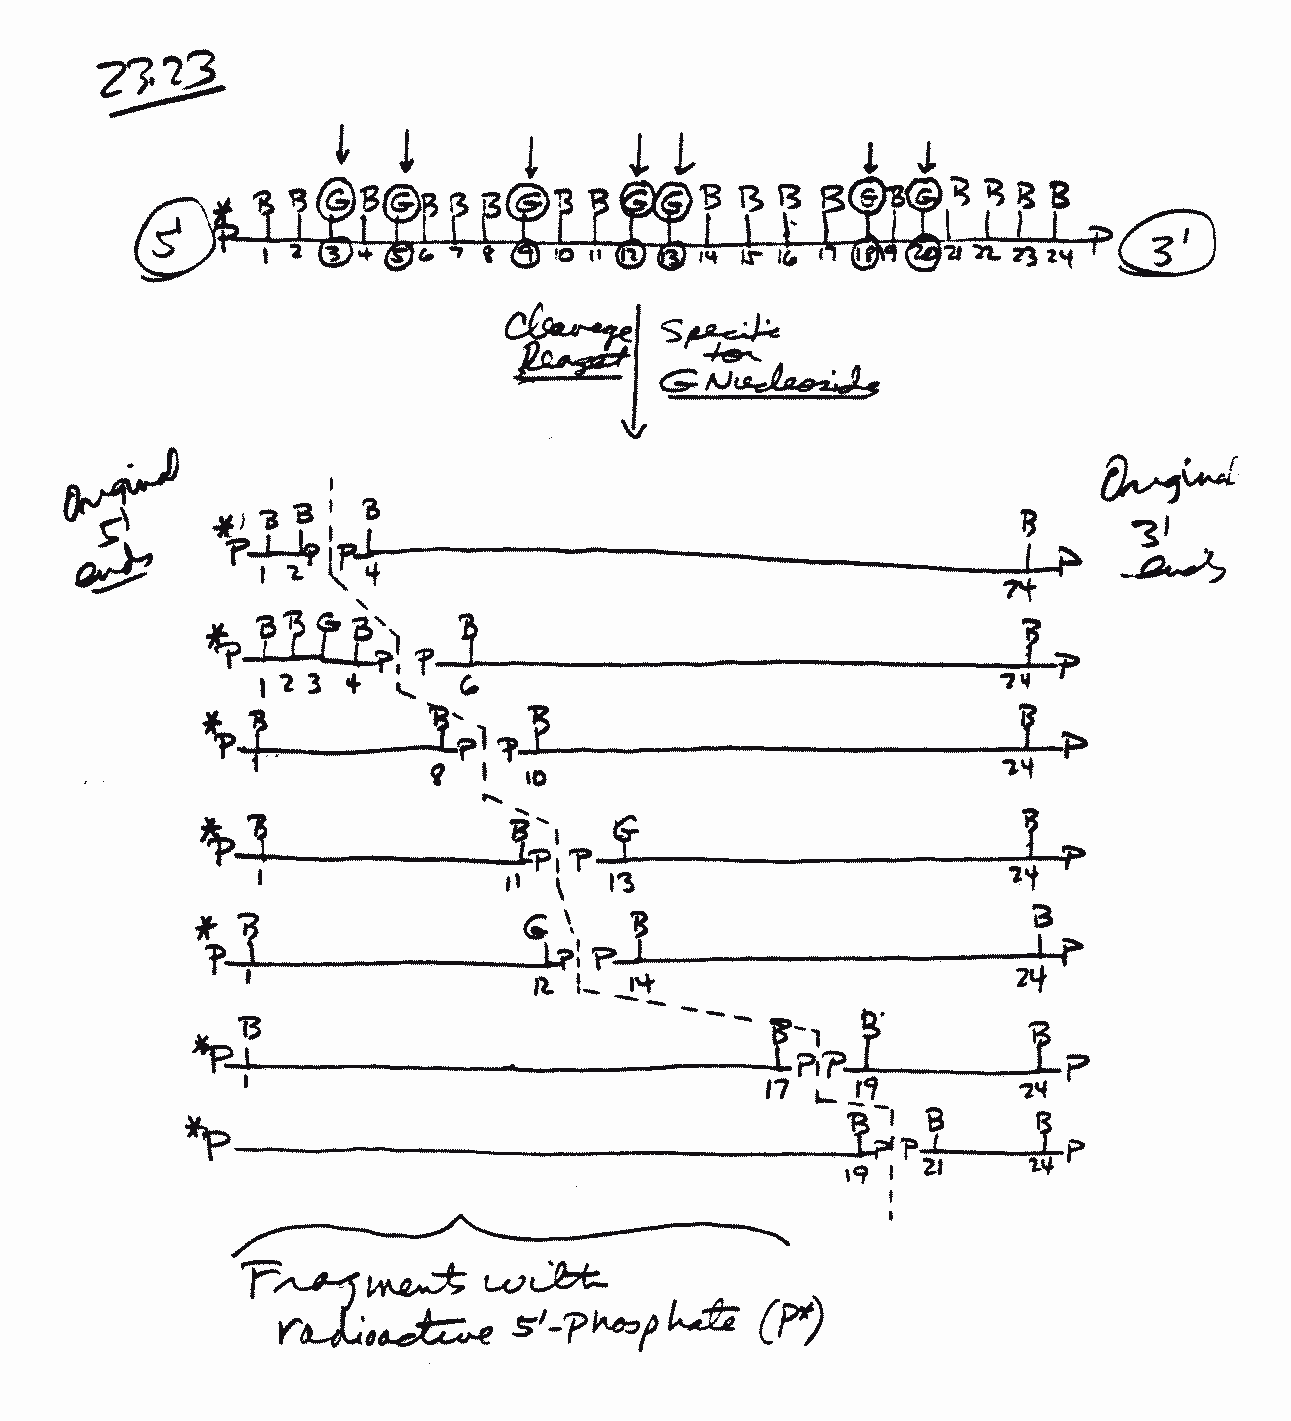 23.23
B B G B G B B B G B B G G B B B B G B G B B B B
5' *P P 3'
1 2 3 4 5 6 7 8 9 10 11 12 13 14 15 16 17 18 19 20 21 22 23 24
Cleavage Specific
Reagent for
G Nucleoside
Original Original
5' 3'
ends ends
B B B B
*P P P P
1 2 4 24
B B G B B B
*P P P P
1 2 3 4 6 24
B B B B
*P P P P
1 8 10 24
B B G B
*P P P P
1 11 13 24
B G B B
*P P P P
1 12 14 24
B B B B
*P P P P
1 17 19 24
B B B
*P P P P
19 21 24
Fragments with
radioactive 5'-Phosphate (P*)